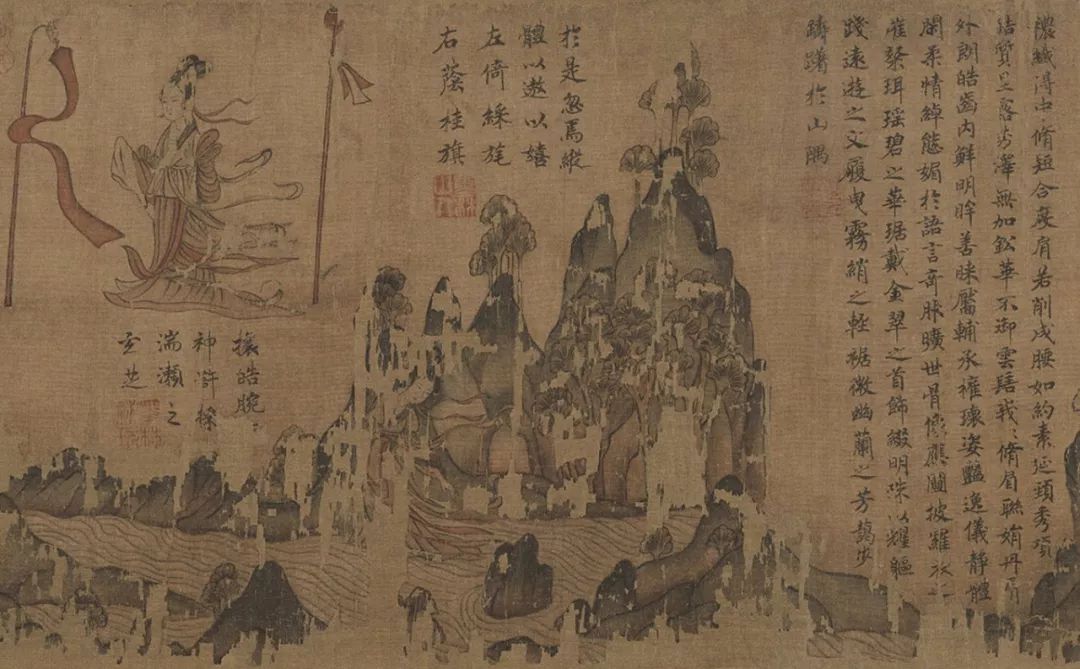 襛纖得中脩短合度肩若削成腰如約素延頸秀項
皓質呈露芳澤無加鈆華不御雲髻峩〻脩眉聯娟丹脣
外朗皓齒內鮮明眸善睞靨輔承權瓌姿豔逸儀靜體
閑柔情綽態媚於語言奇服曠世骨像應圖披羅衣之
璀粲珥瑤碧之華琚戴金翠之首飾綴明珠以耀軀
踐遠遊之文履曳霧綃之輕裾微幽蘭之芳藹步
躊躇於山隅
於是忽焉縱
體以遨以嬉
左倚綵旄
右蔭桂旗
攘皓腕於
神滸採
湍瀨之
玄芝